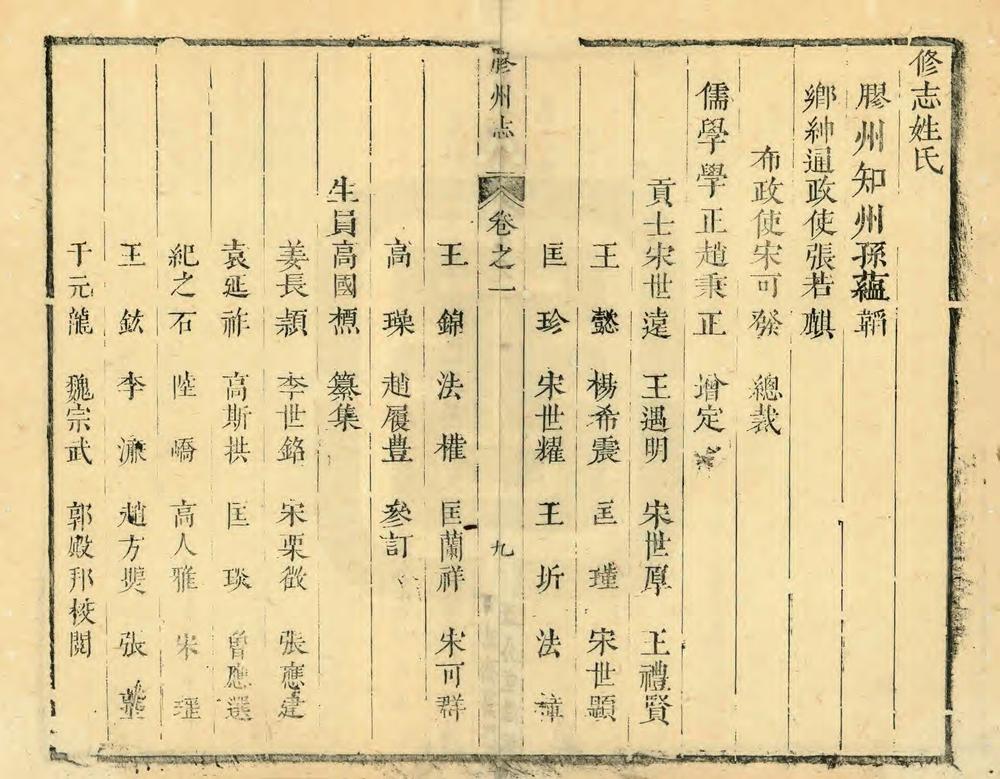 修志姓氏
膠州知州孫蘊韜
鄉紳通政使張若麒
布政使宋可發 總裁
儒學學正趙秉正 增定
貢士宋世遠 王遇明 宋世厚 王禮賢
王懿 楊希震 匡瑾 宋世顯
匡珍 宋世耀 王圻 法璋
膠州志 卷之一 九
王錦 法權 匡蘭祥 宋可群
高璪 趙履豊 參訂
生員高國標 纂集
姜長頴 李世銘 宋栗徵 張應建
袁延祚 高斯拱 匡琰 魯應選
紀之石 陸嶠 高人雅 宋瑾
王鈜 李濂 趙方奭 張
于元龍 魏宗武 郭殿邦校閱